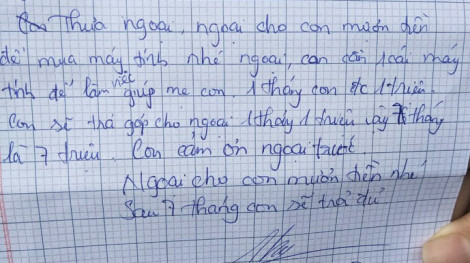 Thưa ngoại, ngoại cho con mượn tiền
để mua máy tính nhé ngoại, con cần 1 cái máy
tính để làm việc giúp mẹ con. 1 tháng con đc 1 triệu.
Con sẽ trả góp cho ngoại 1 tháng 1 triệu vậy 7 tháng
là 7 triệu. Con cảm ơn ngoại trước
Ngoại cho con mượn tiền nhé
Sau 7 tháng con sẽ trả đủ